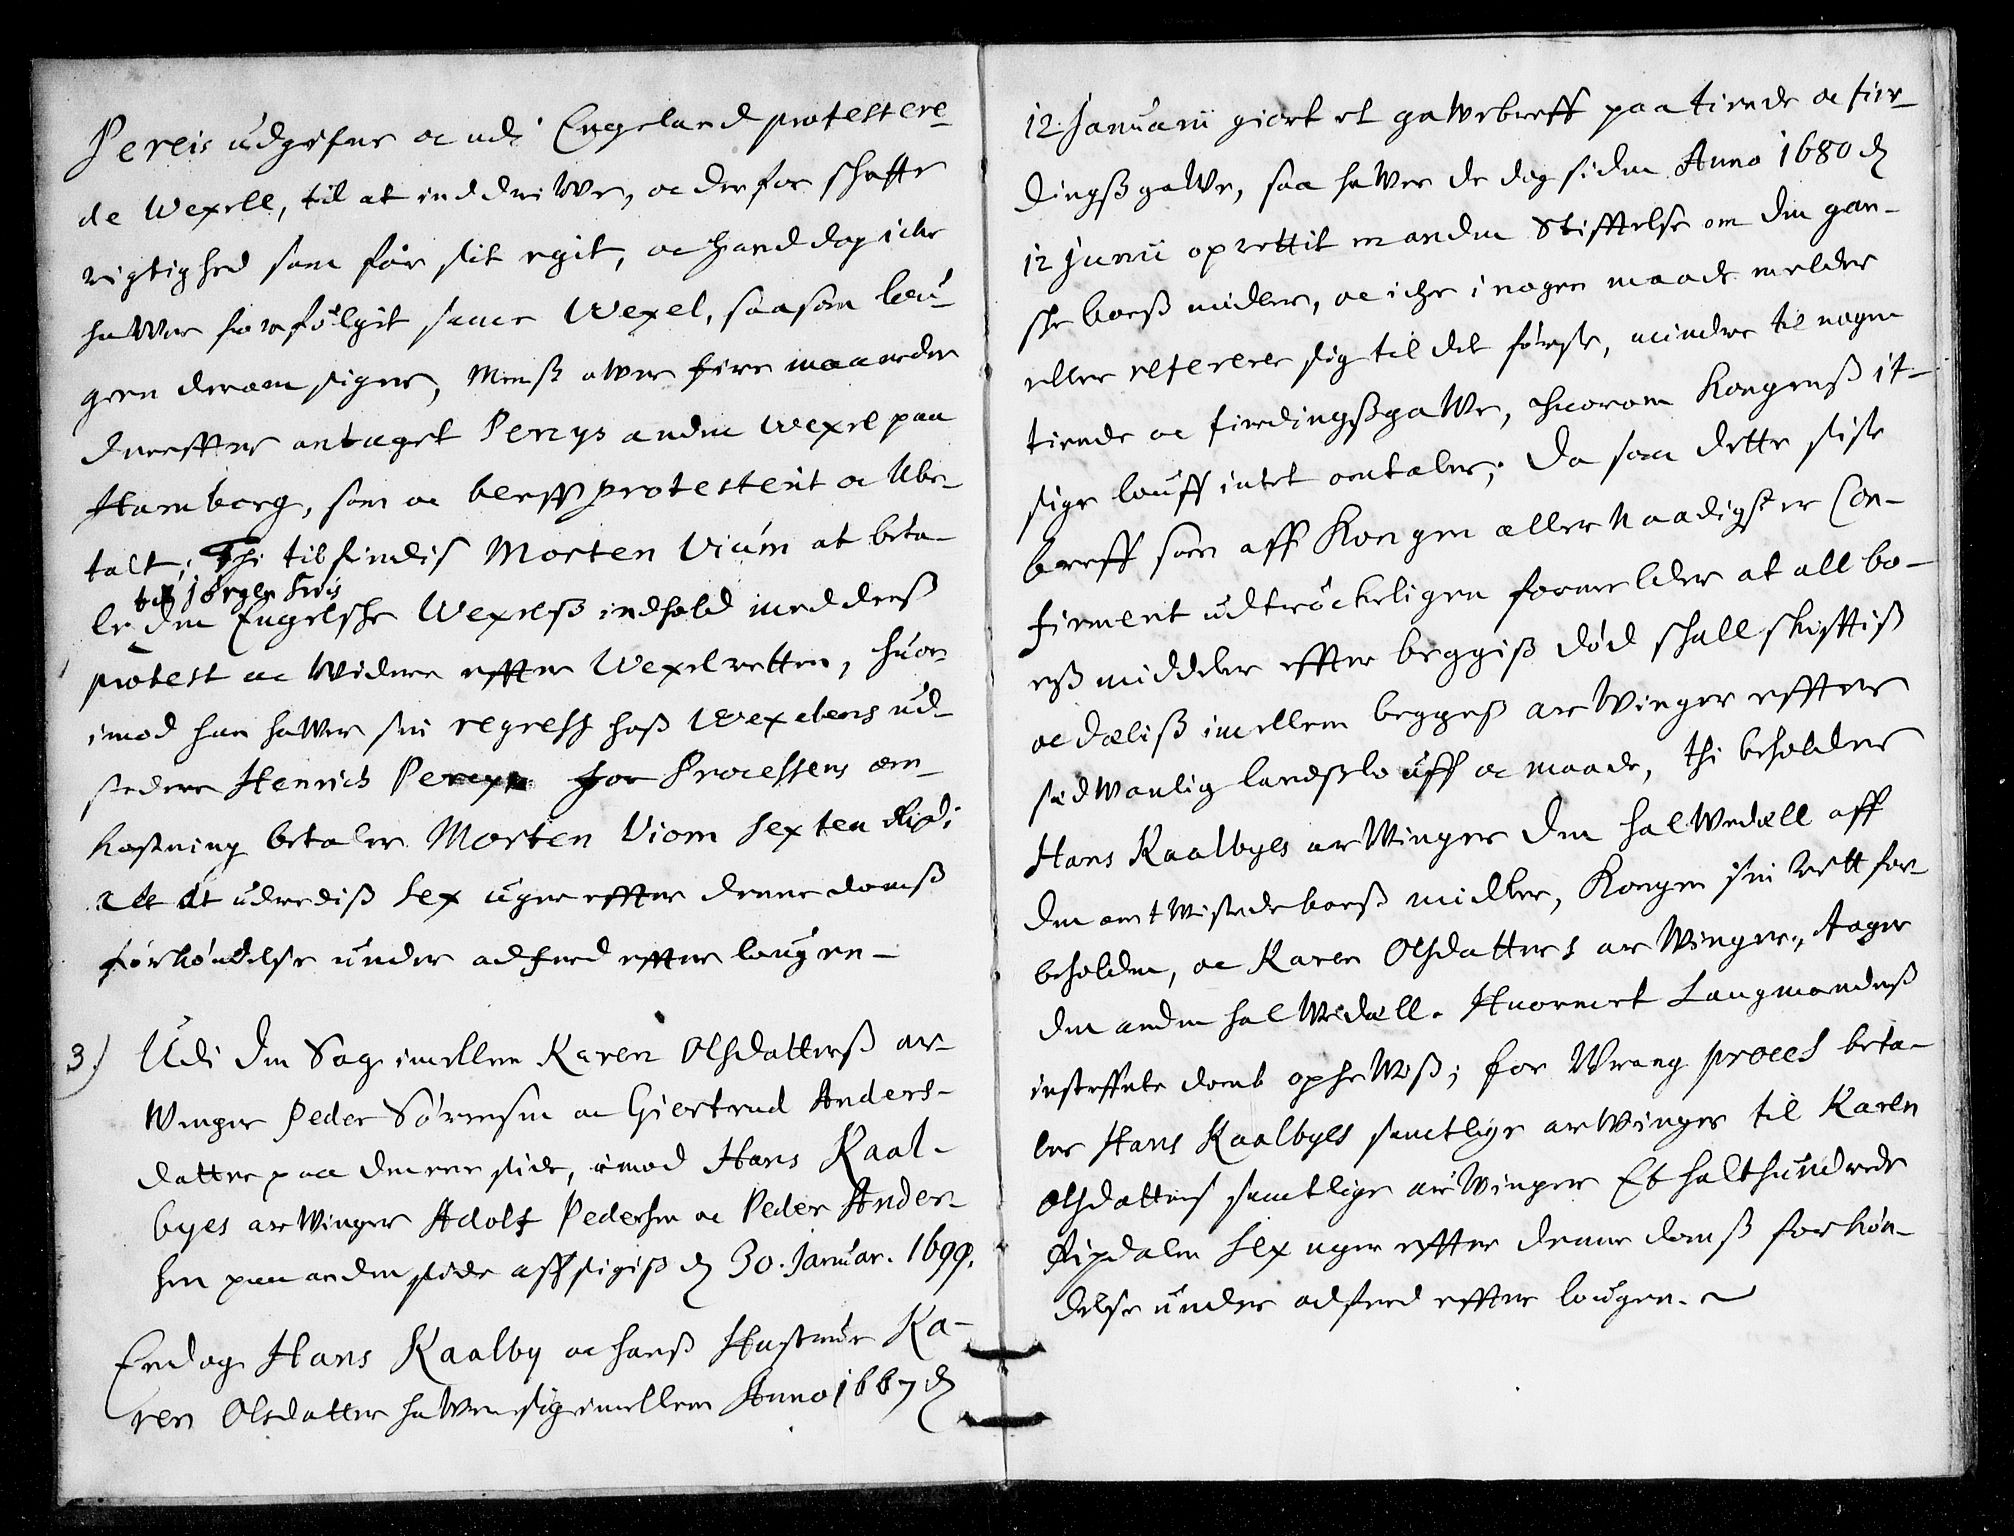 Pereis udgifne oc udi Engeland protestere-
de Wexell, til at inddriWe, oc derfor schaffe
rigtighed som for sit egit, oc hand dog iche
haWer forfølgit samme Wexel, saasom lou-
gen derom siger, Menß ower fire maaneder
dereffter antaget Perrys anden Wexel paa
Hamborg, som oc bleff protesterit oc Ube-
talt; Thi tilfindis Morten Vium at beta-
til Jørgen Friis
le den Engelsche Wexelß indhold med deß
protest oc Widere effter Wexelretten, huor-
imod han haWer sin regress hoß Wexelens ud-
stedere Henrich Perry. for Processens om-
kostning betaler Morten Viom sexten Rixd:
alt at udrediß sex uger effter denne domß
forkøndelse under adferd effter lougen-
3) Udi den Sag imellem Karen Olsdatterß ar-
Winger Peder Sørensen oc Giertrud Anders-
datter paa den ene side, imod Hans Kaal-
byes arWinger Adolf Pedersen oc Peder Ander-
sen paa anden side affsigiß d 30. Januar. 1699.
Endog Hans Kaalby oc hanß Hustrue Ka-
ren Olsdatter haWer sig imellem Anno 1667 d
12. Januarii giort et gaWebreff paa tiende oc fier-
dingßgaWe, saa haWer de dog siden Anno 1680 d
12 Junii oprettit en anden Stifftelse om den gan-
sche boeß midler, oc iche i nogen maade melder
eller referere sig til det første, mindre til nogen
tiende oc fierdingßgaWe, huorom Kongenß it-
sige louff intet omtaler; Da som dette siste
breff som aff Kongen allernaadigst er Con-
firmert udtrøckeligen formelder at all bo-
eß middeler effter beggiß død schall skifftiß
oc deeliß imellem beggeß arWinger effter
sædWanlig landßlouff oc maade, thi beholder
Hans Kaalbyes arWinger den halWedeell aff
den omtWistede boeß midler, Kongen sin Rett for-
beholden, oc Karen Olsdatters arWinger, tager
den anden halWedeell. Huormet Laugmandenß
insteffnte domb opheWeß; for Wrang proces beta-
ler Hans Kaalbyes samtlige arWinger til Karen
Olsdatters samtlige arWinger Et halfhundrede
Rixdaler sex uger effter denne domß forkøn-
delse under adferd effter lougen.